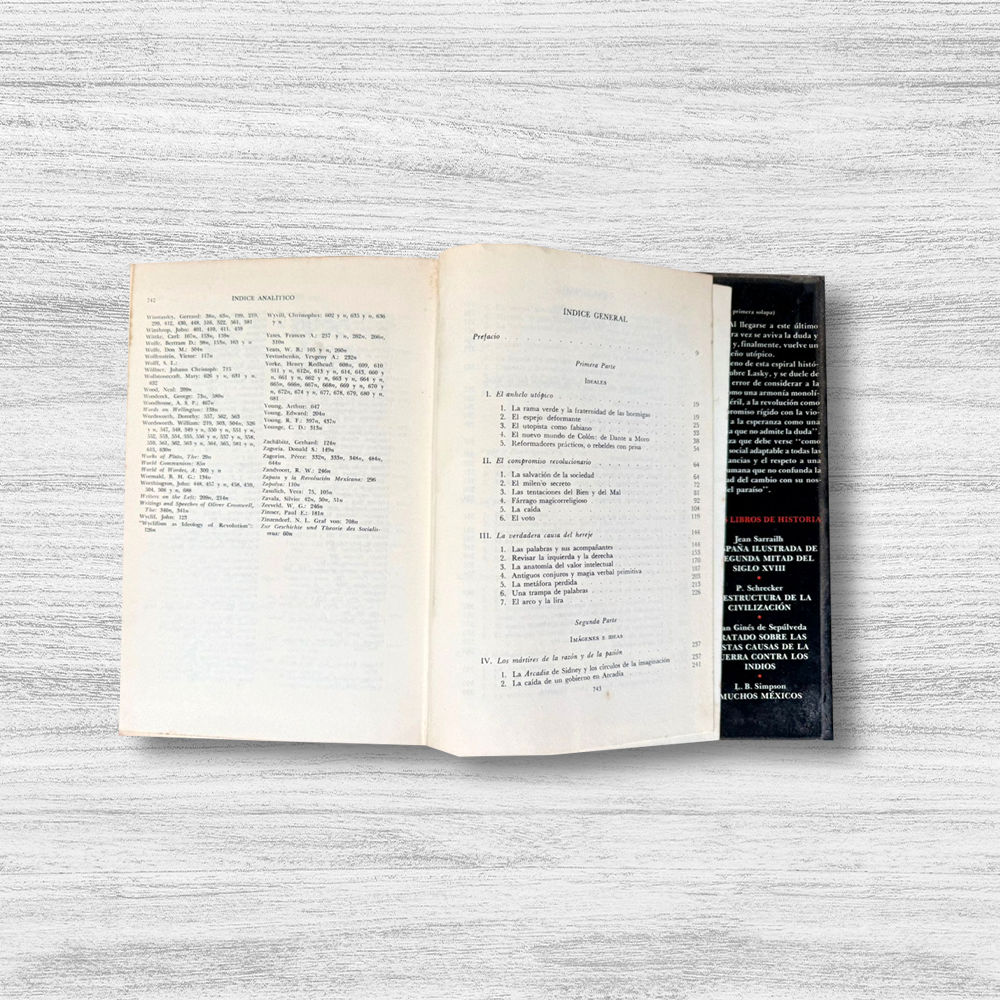 742
INDICE ANALÍTICO
Winstanley, Gerrard: 38n, 63n, 199, 219,
Winthrop, John: 401, 410, 411, 439
Wittke, Carl: 107n, 153n, 159n
Wolfe, Don M.: 304n
Wolfenstein, Victor: 117n
Wolff, S. L.:
Wöllner, Johann Christoph: 715
Wollstonecraft, Mary: 626 y n, 631 y n,
632
Wood, Neal: 209n
Woodcock, George: 73n, 580n
Woodhouse, A. S. P.: 467n
Words on Wellington: 138n
Wordsworth, Dorothy: 537, 562, 563
Wordsworth, William: 219, 503, 504n, 526
Works of Plato, The: 20n
World Communism: 85n
World of Wordes, A: 300 y n
Wormald, B. H. G.: 194n
Worthington, John: 448, 457 y n, 458, 459,
504, 506 y n, 688
Writers on the Left: 209n, 214n
Writings and Speeches of Oliver Cromwell,
The: 340n, 341n
Wyclif, John: 123
"Wyclifism as Ideology of Revolution":
126n
Wyvill, Christopher: 602 y n, 635 y n, 636
y n
Yates, Frances A.: 257 y n, 262n, 266n,
310n
Yeats, W. B.: 105 y n, 260n
Yevtushenko, Yevgeny A.: 232n
Yorke, Henry Redhead: 608n, 609, 610
611 y n, 612n, 613 y n, 614, 615, 660 y
n, 661 y n, 662 y n, 663 y n, 664 y n,
665n, 666n, 667n, 668n, 669 y n, 670 y
n, 672n, 674 y n, 677, 678, 679, 680 y n,
681
Young, Arthur: 647
Young, Edward: 204n
Young, R. F.: 397n, 437n
Younge, C. D.: 313n
Zachäbitz, Gerhard: 124n
Zagoria, Donald S.: 149n
Zagorin, Pérez: 332n, 333n, 348n, 484n,
644n
Zandvoort, R. W.: 246n
Zapata y la Revolución Mexicana: 296
Zapolya: 110n
Zavala, Silvio: 42n, 50n, 51n
Zeeveld, W. G.: 246n
Zinner, Paul E.: 181n
Zinzendorf, N. L. Graf von: 708n
Zur Geschichte und Theorie des Socialis-
mus: 60n
ÍNDICE GENERAL
Prefacio 9
Primera Parte
IDEALES
I. El anhelo utópico 19
1. La rama verde y la fraternidad de las hormigas 19
2. El espejo deformante 25
3. El utopista como fabiano 33
4. El nuevo mundo de Colón: de Dante a Moro 38
5. Reformadores prácticos, o rebeldes con prisa 56
II. El compromiso revolucionario 64
1. La salvación de la sociedad 64
2. El milenio secreto 72
3. Las tentaciones del Bien y del Mal 81
4. Fárrago magicorreligioso 92
5. La caída 104
6. El voto 119
III. La verdadera causa del hereje 144
1. Las palabras y sus acompañantes 144
2. Revisar la izquierda y la derecha 158
3. La anatomía del valor intelectual 170
4. Antiguos conjuros y magia verbal primitiva 187
5. La metáfora perdida 203
6. Una trampa de palabras 213
7. El arco y la lira 226
Segunda Parte
IMÁGENES E IDEAS
IV. Los mártires de la razón y de la pasión 237
1. La Arcadia de Sidney y los círculos de la imaginación 237
2. La caída de un gobierno en Arcadia 241
743
primera solapa)
Al llegarse a este último
ra vez se aviva la duda y
, finalmente, vuelve un
eño utópico.
eno de esta espiral histó-
ubre Lasky, y se duele de
error de considerar a la
una armonía monolí-
éril, a la revolución como
romiso rígido con la vio-
a la esperanza como una
a que no admite la duda".
za que debe verse "como
social adaptable a todas las
ancias y el respeto a una
umana que no confunda la
ad del cambio con su nos-
el paraíso".
S LIBROS DE HISTORIA
Jean Sarrailh
SPAÑA ILUSTRADA DE
EGUNDA MITAD DEL
SIGLO XVIII
P. Schrecker
ESTRUCTURA DE LA
CIVILIZACIÓN
an Ginés de Sepúlveda
RATADO SOBRE LAS
STAS CAUSAS DE LA
UERRA CONTRA LOS
INDIOS
L. B. Simpson
MUCHOS MÉXICOS